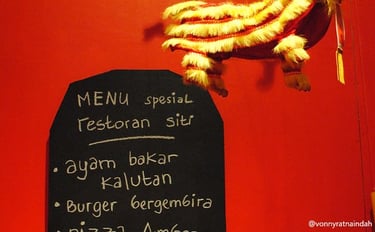 MENU spesial
restoran siti
• ayam bakar
kalutan
• Burger bergembira
@vonnyratnaindah